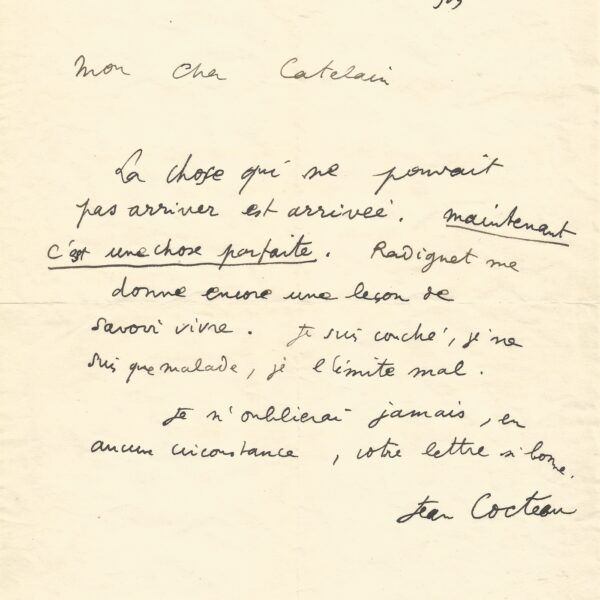 Mon cher Catelain
La chose qui ne pouvait
pas arriver est arrivée. maintenant
c'est une chose parfaite. Radiguet me
donne encore une leçon de
savoir vivre. Je suis couché, je ne
suis que malade, je l'imite mal.
Je n'oublierai jamais, en
aucune circonstance, votre lettre si bonne.
Jean Cocteau